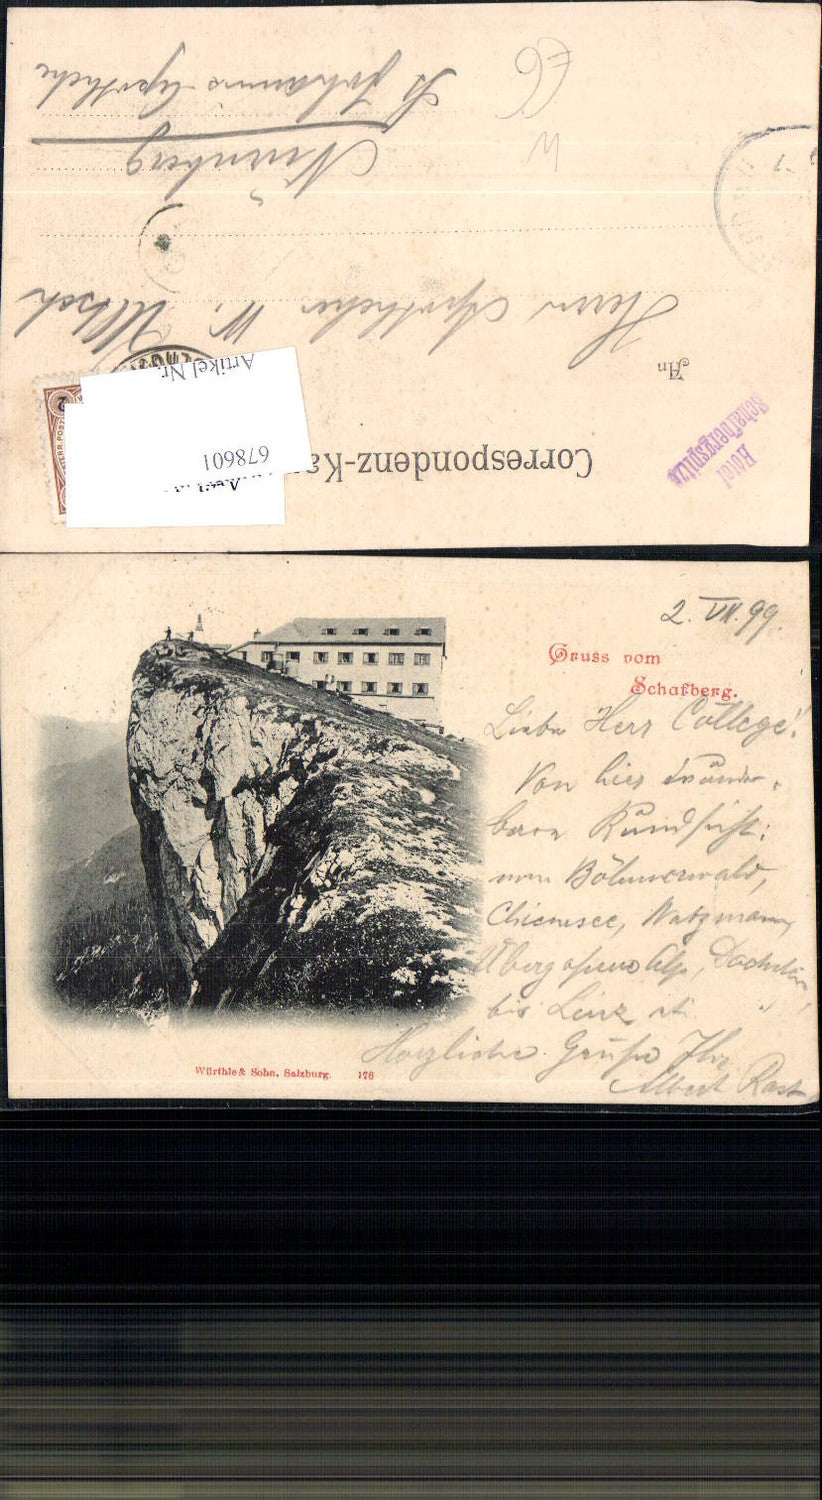 Correspondenz-Ka
Artikel Nr.
678601
Hotel
Schafbergspitze
An
Herrn Apotheker W.
Nürnberg
St Johannis Apotheke
2
2. VII. 99.
Gruss vom
Schafberg.
Lieber Herr College!
Von hier wunder-
bare Rundsicht:
vom Böhmerwald,
Chiemsee, Watzmann,
Übergossene Alp, Dachstein,
bis Linz
Herzliche Grüße Ihr
Albert Rast
Würthle & Sohn, Salzburg. 176